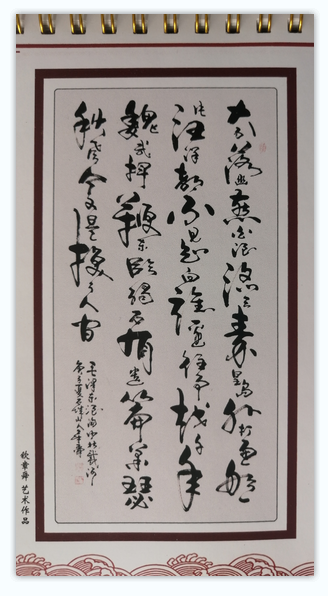 大雨落幽燕白浪滔天秦皇島外打魚船
一片汪洋都不见知向誰边往事越千年
魏武揮鞭东临碣石有遗篇萧瑟
秋风今又是换了人间
毛泽东浪淘沙北戴河
庚子夏
钦章舜 艺术作品